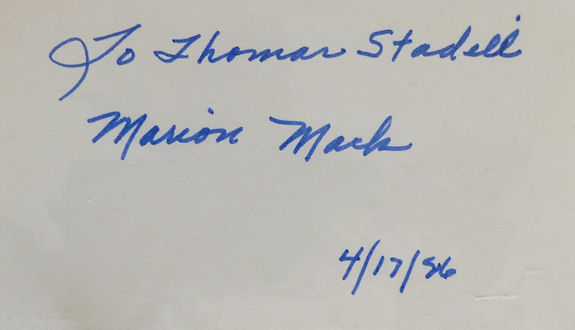 To Thomas Stadell
Marion Mack
4/17/86